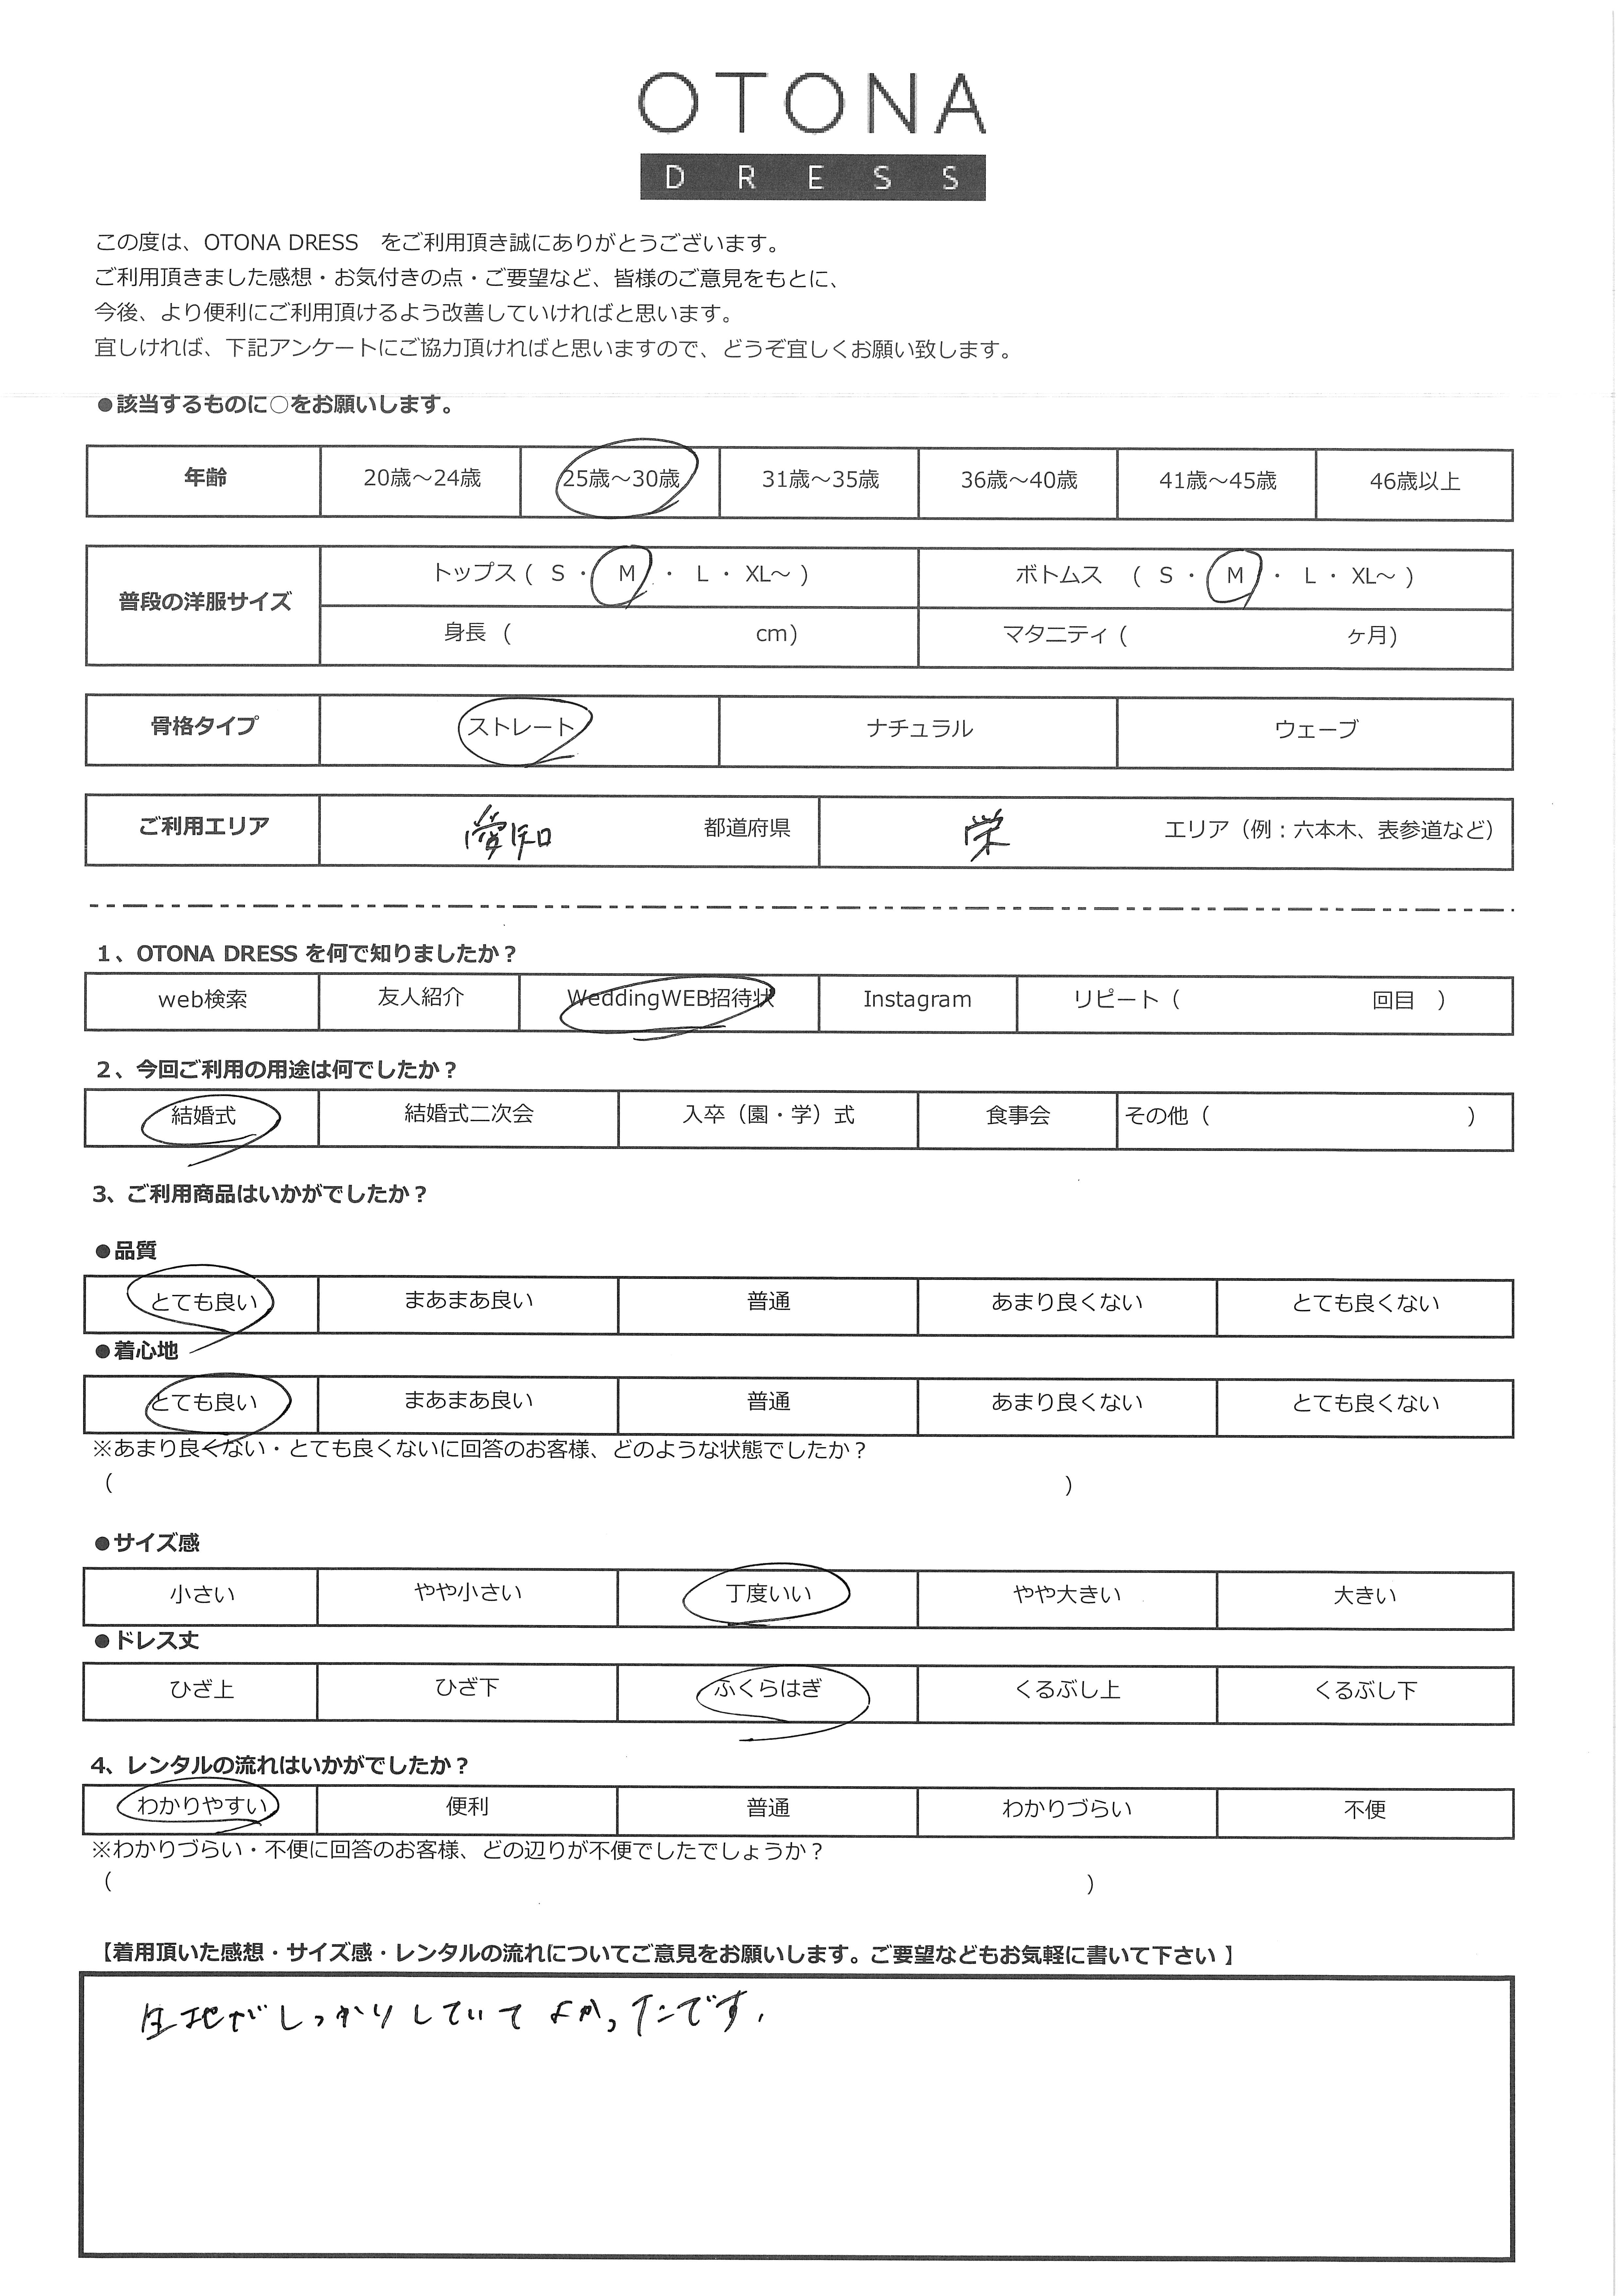 OTONA
DRESS
この度は、OTONA DRESS　をご利用頂き誠にありがとうございます。
ご利用頂きました感想・お気付きの点・ご要望など、皆様のご意見をもとに、
今後、より便利にご利用頂けるよう改善していければと思います。
宜しければ、下記アンケートにご協力頂ければと思いますので、どうぞ宜しくお願い致します。
●該当するものに○をお願いします。
年齢 20歳～24歳 25歳～30歳 31歳～35歳 36歳～40歳 41歳～45歳 46歳以上
普段の洋服サイズ トップス ( S ・ M ・ L ・ XL～ ) ボトムス ( S ・ M ・ L ・ XL～ )
身長 ( cm) マタニティ ( ヶ月)
骨格タイプ ストレート ナチュラル ウェーブ
ご利用エリア 愛知 都道府県 栄 エリア（例：六本木、表参道など）
1、OTONA DRESS を何で知りましたか？
web検索 友人紹介 WeddingWEB招待状 Instagram リピート（ 回目 ）
2、今回ご利用の用途は何でしたか？
結婚式 結婚式二次会 入卒（園・学）式 食事会 その他（ ）
3、ご利用商品はいかがでしたか？
●品質
とても良い まあまあ良い 普通 あまり良くない とても良くない
●着心地
とても良い まあまあ良い 普通 あまり良くない とても良くない
※あまり良くない・とても良くないに回答のお客様、どのような状態でしたか？
（ ）
●サイズ感
小さい やや小さい 丁度いい やや大きい 大きい
●ドレス丈
ひざ上 ひざ下 ふくらはぎ くるぶし上 くるぶし下
4、レンタルの流れはいかがでしたか？
わかりやすい 便利 普通 わかりづらい 不便
※わかりづらい・不便に回答のお客様、どの辺りが不便でしたでしょうか？
（ ）
【着用頂いた感想・サイズ感・レンタルの流れについてご意見をお願いします。ご要望などもお気軽に書いて下さい 】
生地がしっかりしていてよかったです。